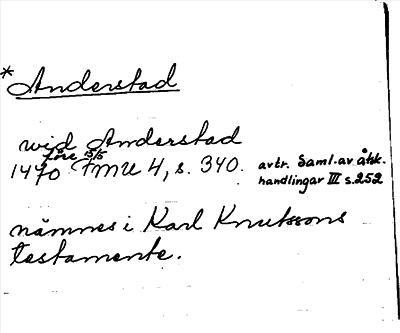 * Anderstad
wid Anderstad
före 15/5
1470 FMU 4, s. 340. avtr. Saml. av åtsk.
handlingar III s. 252
nämnes i Karl Knutssons
testamente.